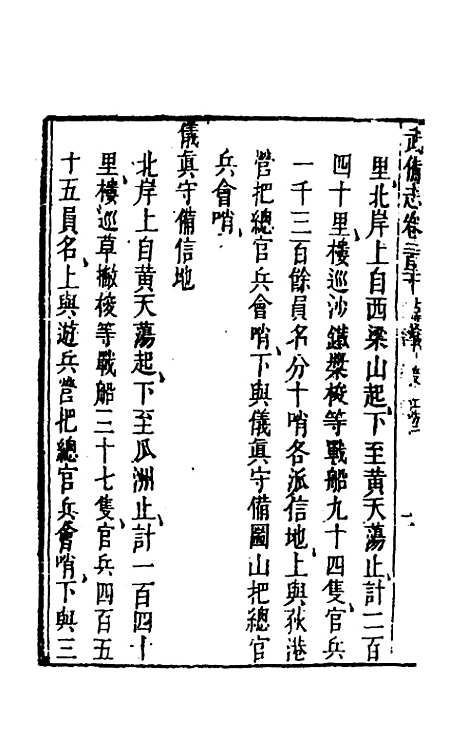 武備志卷二百二十
里北岸上自西梁山起下至黃天蕩止計二百
四十里樓巡沙鐵槳梭等戰船九十四隻官兵
一千三百餘員名分十哨各派信地上與荻港
營把總官兵會哨下與儀眞守備圌山把總官
兵會哨
儀眞守備信地
北岸上自黃天蕩起下至瓜洲止計一百四十
里樓巡草撇梭等戰船三十七隻官兵四百五
十五員名上與遊兵營把總官兵會哨下與三